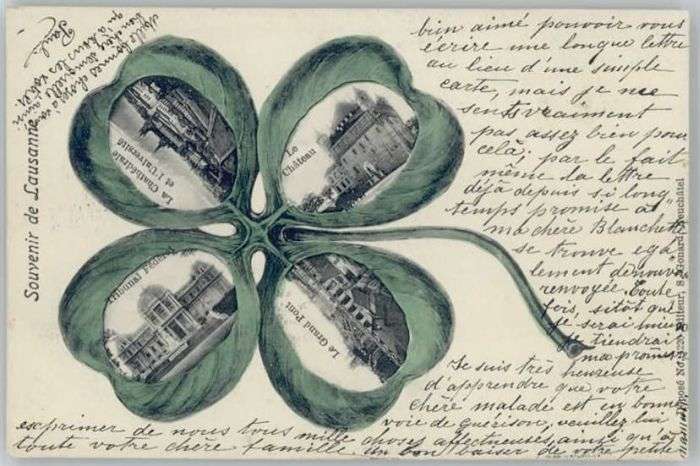 bien aimé pouvoir vous
écrire une longue lettre
au lieu d'une simple
carte, mais je me
sens vraiment
pas assez bien pour
celà; par le fait
même la lettre
déjà depuis si long
temps promise à
ma chère Blanchette
se trouve éga
lement de nouv
renvoyée. Toute
fois, sitôt que
je serai mieux
je tiendrai
ma promesse
Je suis très heureuse
d'apprendre que votre
chère malade est en bonne
voie de guérison, veuillez lui
exprimer de nous tous mille choses affectueuses, ainsi qu'à
toute votre chère famille. Un bon baiser de votre petite
Mille bonnes choses
Paul
Souvenir de Lausanne
La Chathédrale
et l'Université
Le
Château
Tribunal Fédéral
Le Grand Pont
Editeur, Neuchâtel